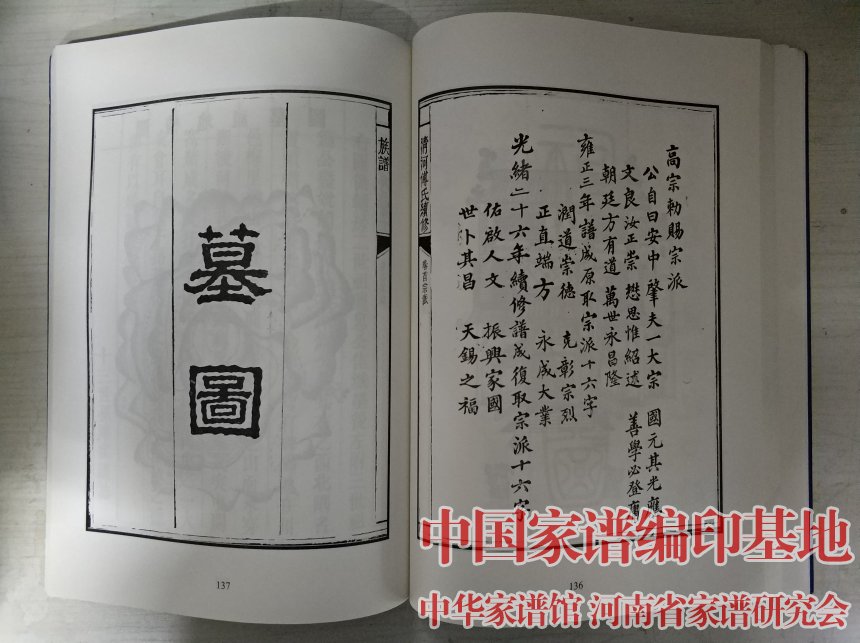 高宗勅賜宗派
公自曰安中 肇夫一大宗 國元其光應
文良汝正崇 懋思惟紹述 善學必登庸
朝廷方有道 萬世永昌隆
雍正三年譜成原取宗派十六字
潤道崇德 克彰宗烈
正直端方 永成大業
光緒二十六年續修譜成復取宗派十六字
佑啟人文 振興家國
世卜其昌 天錫之福
清河傅氏續修
136
族譜
墓圖
137
中国家谱编印基地
中华家谱馆 河南省家谱研究会